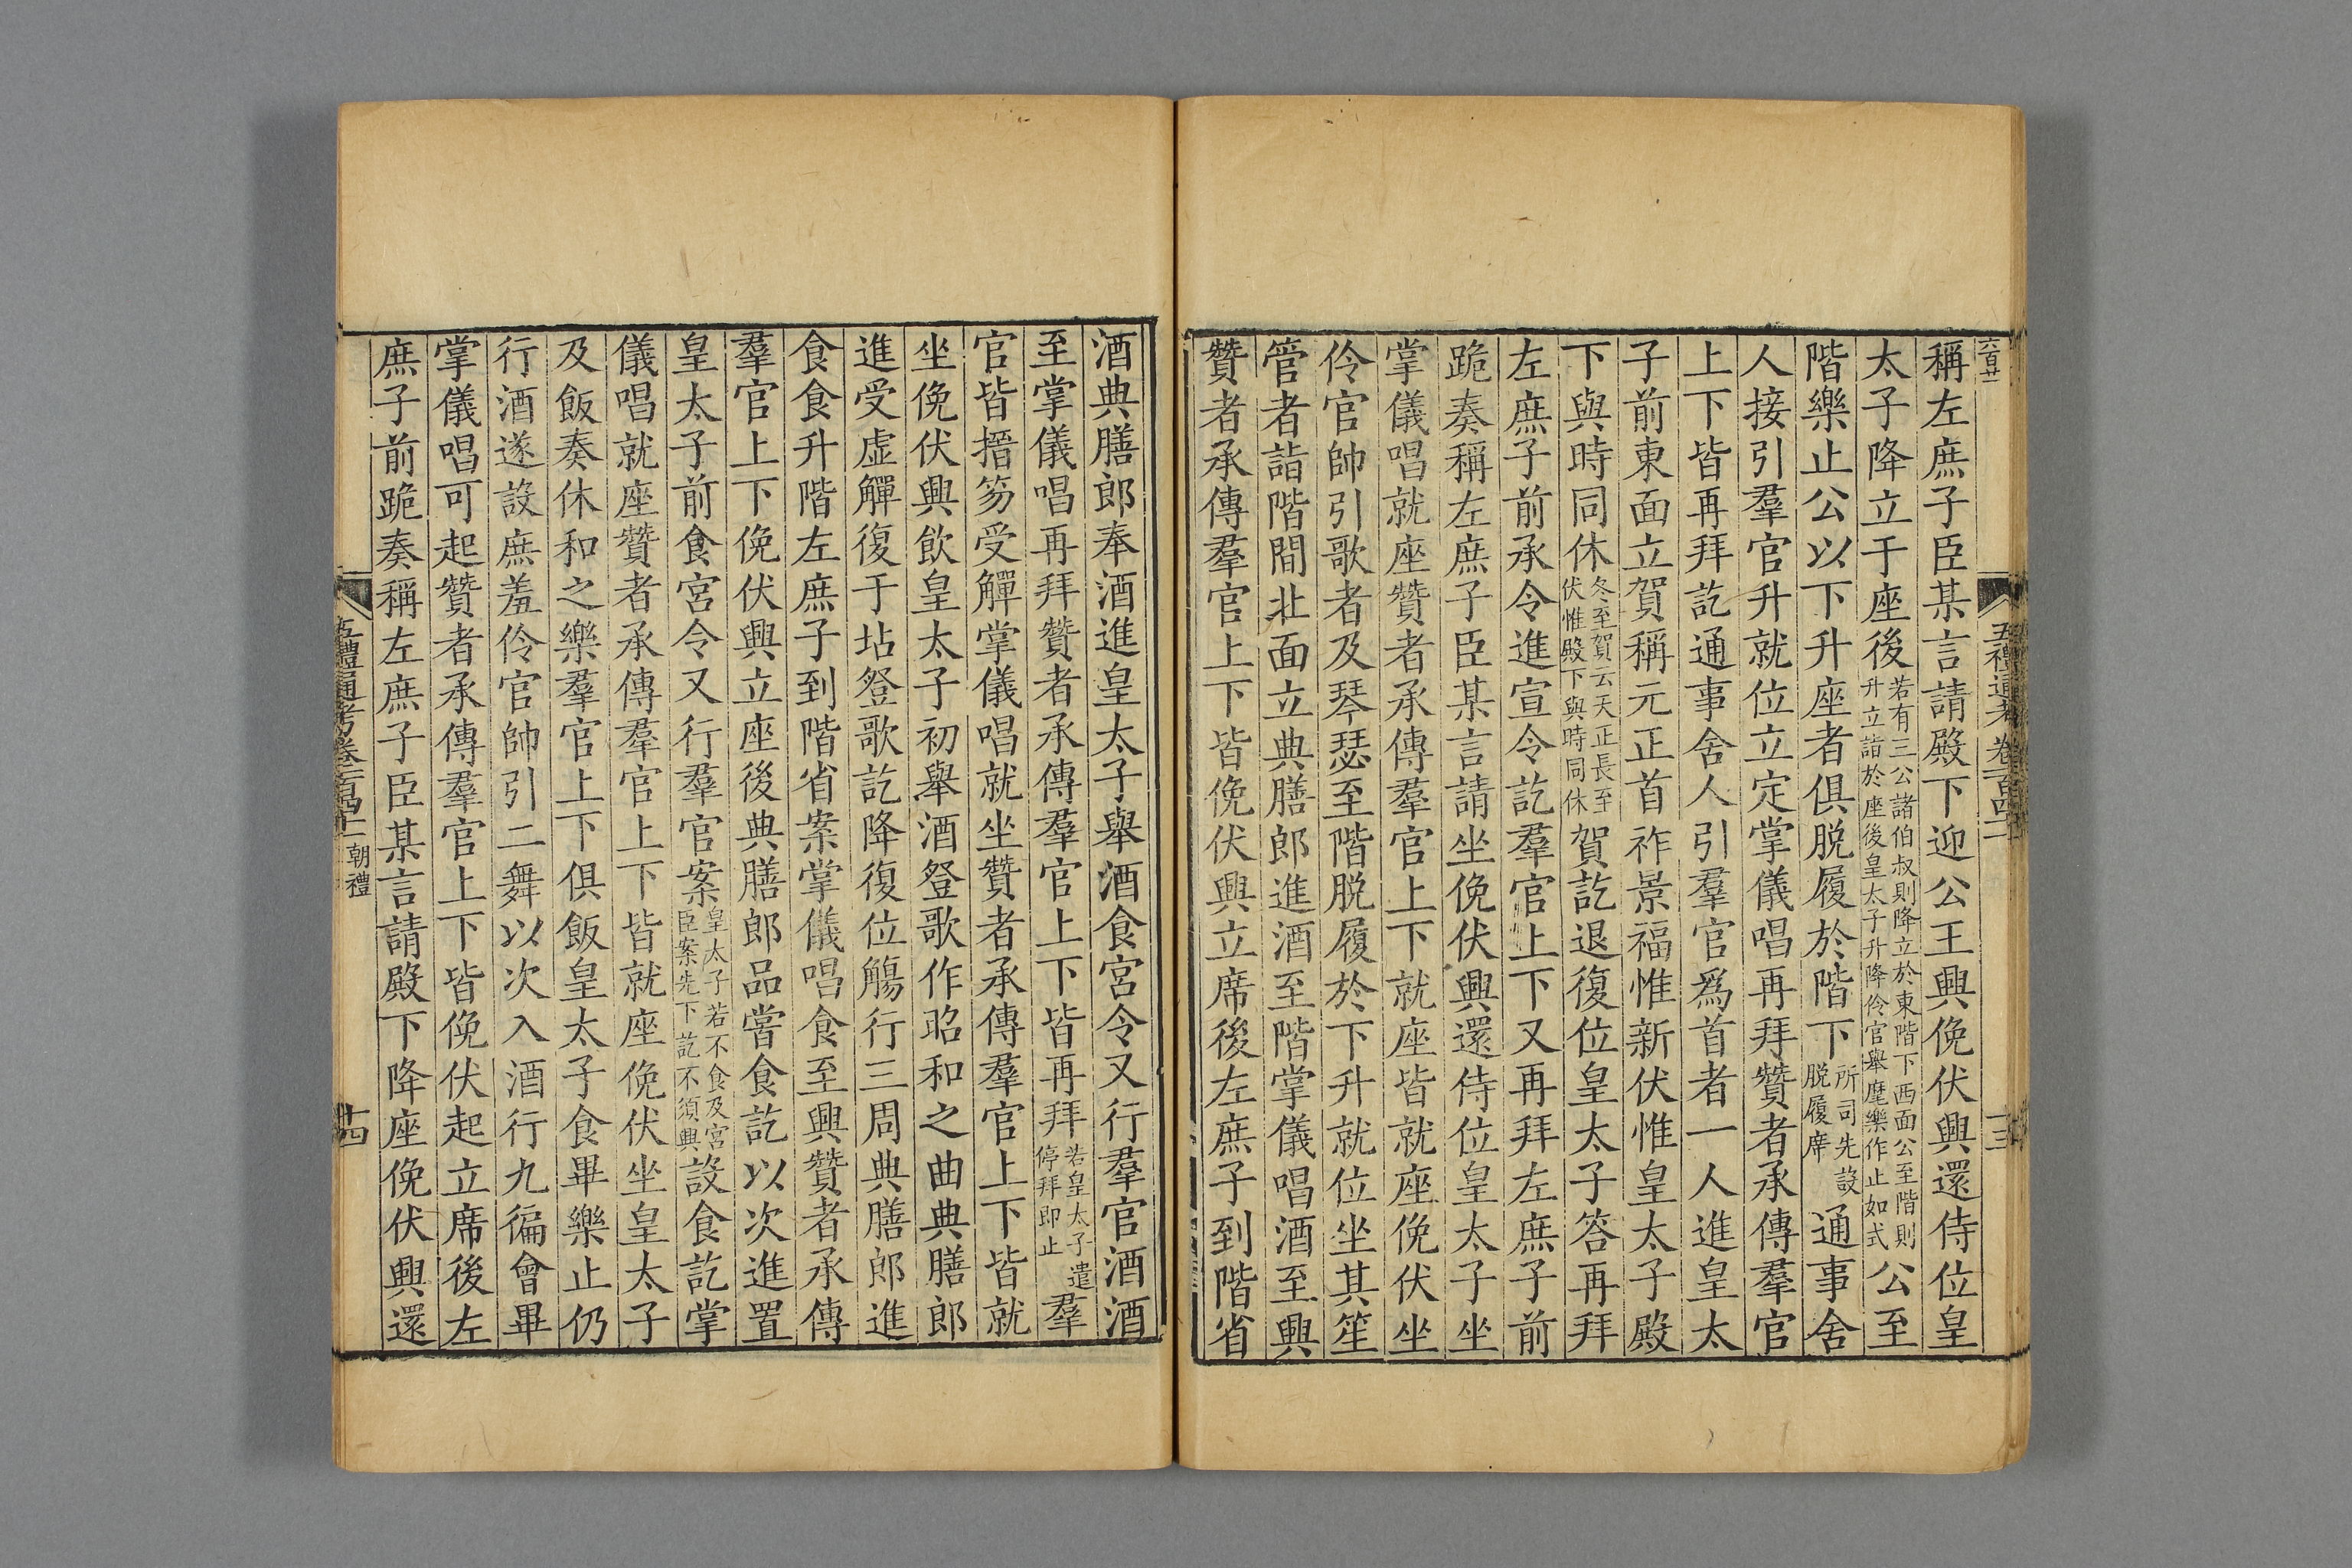 稱左庶子臣某言請殿下迎公王興俛伏興還侍位皇
太子降立于座後若有三公諸伯叔則降立於東階下西面公至階則升立詣於座後皇太子升降伶官舉麾樂作止如式公至
階樂止公以下升座者俱脱履於階下所司先設脱履席通事舍
人接引羣官升就位立定掌儀唱再拜贊者承傳羣官
上下皆再拜訖通事舍人引羣官爲首者一人進皇太
子前東面立賀稱元正首祚景福惟新伏惟皇太子殿
下與時同休冬至賀云天正長至伏惟殿下與時同休賀訖退復位皇太子答再拜
左庶子前承令進宣令訖羣官上下又再拜左庶子前
跪奏稱左庶子臣某言請坐俛伏興還侍位皇太子坐
掌儀唱就座贊者承傳羣官上下就座皆就座俛伏坐
伶官帥引歌者及琴瑟至階脱履於下升就位坐其笙
管者詣階間北面立典膳郎進酒至階掌儀唱酒至興
贊者承傳羣官上下皆俛伏興立席後左庶子到階省
酒典膳郎奉酒進皇太子舉酒食宮令又行羣官酒酒
至掌儀唱再拜贊者承傳羣官上下皆再拜若皇太子遣停拜即止羣
官皆搢笏受觶掌儀唱就坐贊者承傳羣官上下皆就
坐俛伏興飲皇太子初舉酒登歌作昭和之曲典膳郎
進受虛觶復于坫登歌訖降復位觴行三周典膳郎進
食食升階左庶子到階省案掌儀唱食至興贊者承傳
羣官上下俛伏興立座後典膳郎品嘗食訖以次進置
皇太子前食宮令又行羣官案皇太子若不食及宮臣案先下訖不須興設食訖掌
儀唱就座贊者承傳羣官上下皆就座俛伏坐皇太子
及飯奏休和之樂羣官上下俱飯皇太子食畢樂止仍
行酒遂設庶羞伶官帥引二舞以次入酒行九徧會畢
掌儀唱可起贊者承傳羣官上下皆俛伏起立席後左
庶子前跪奏稱左庶子臣某言請殿下降座俛伏興還
五禮通考卷一百四十一 朝禮
十四